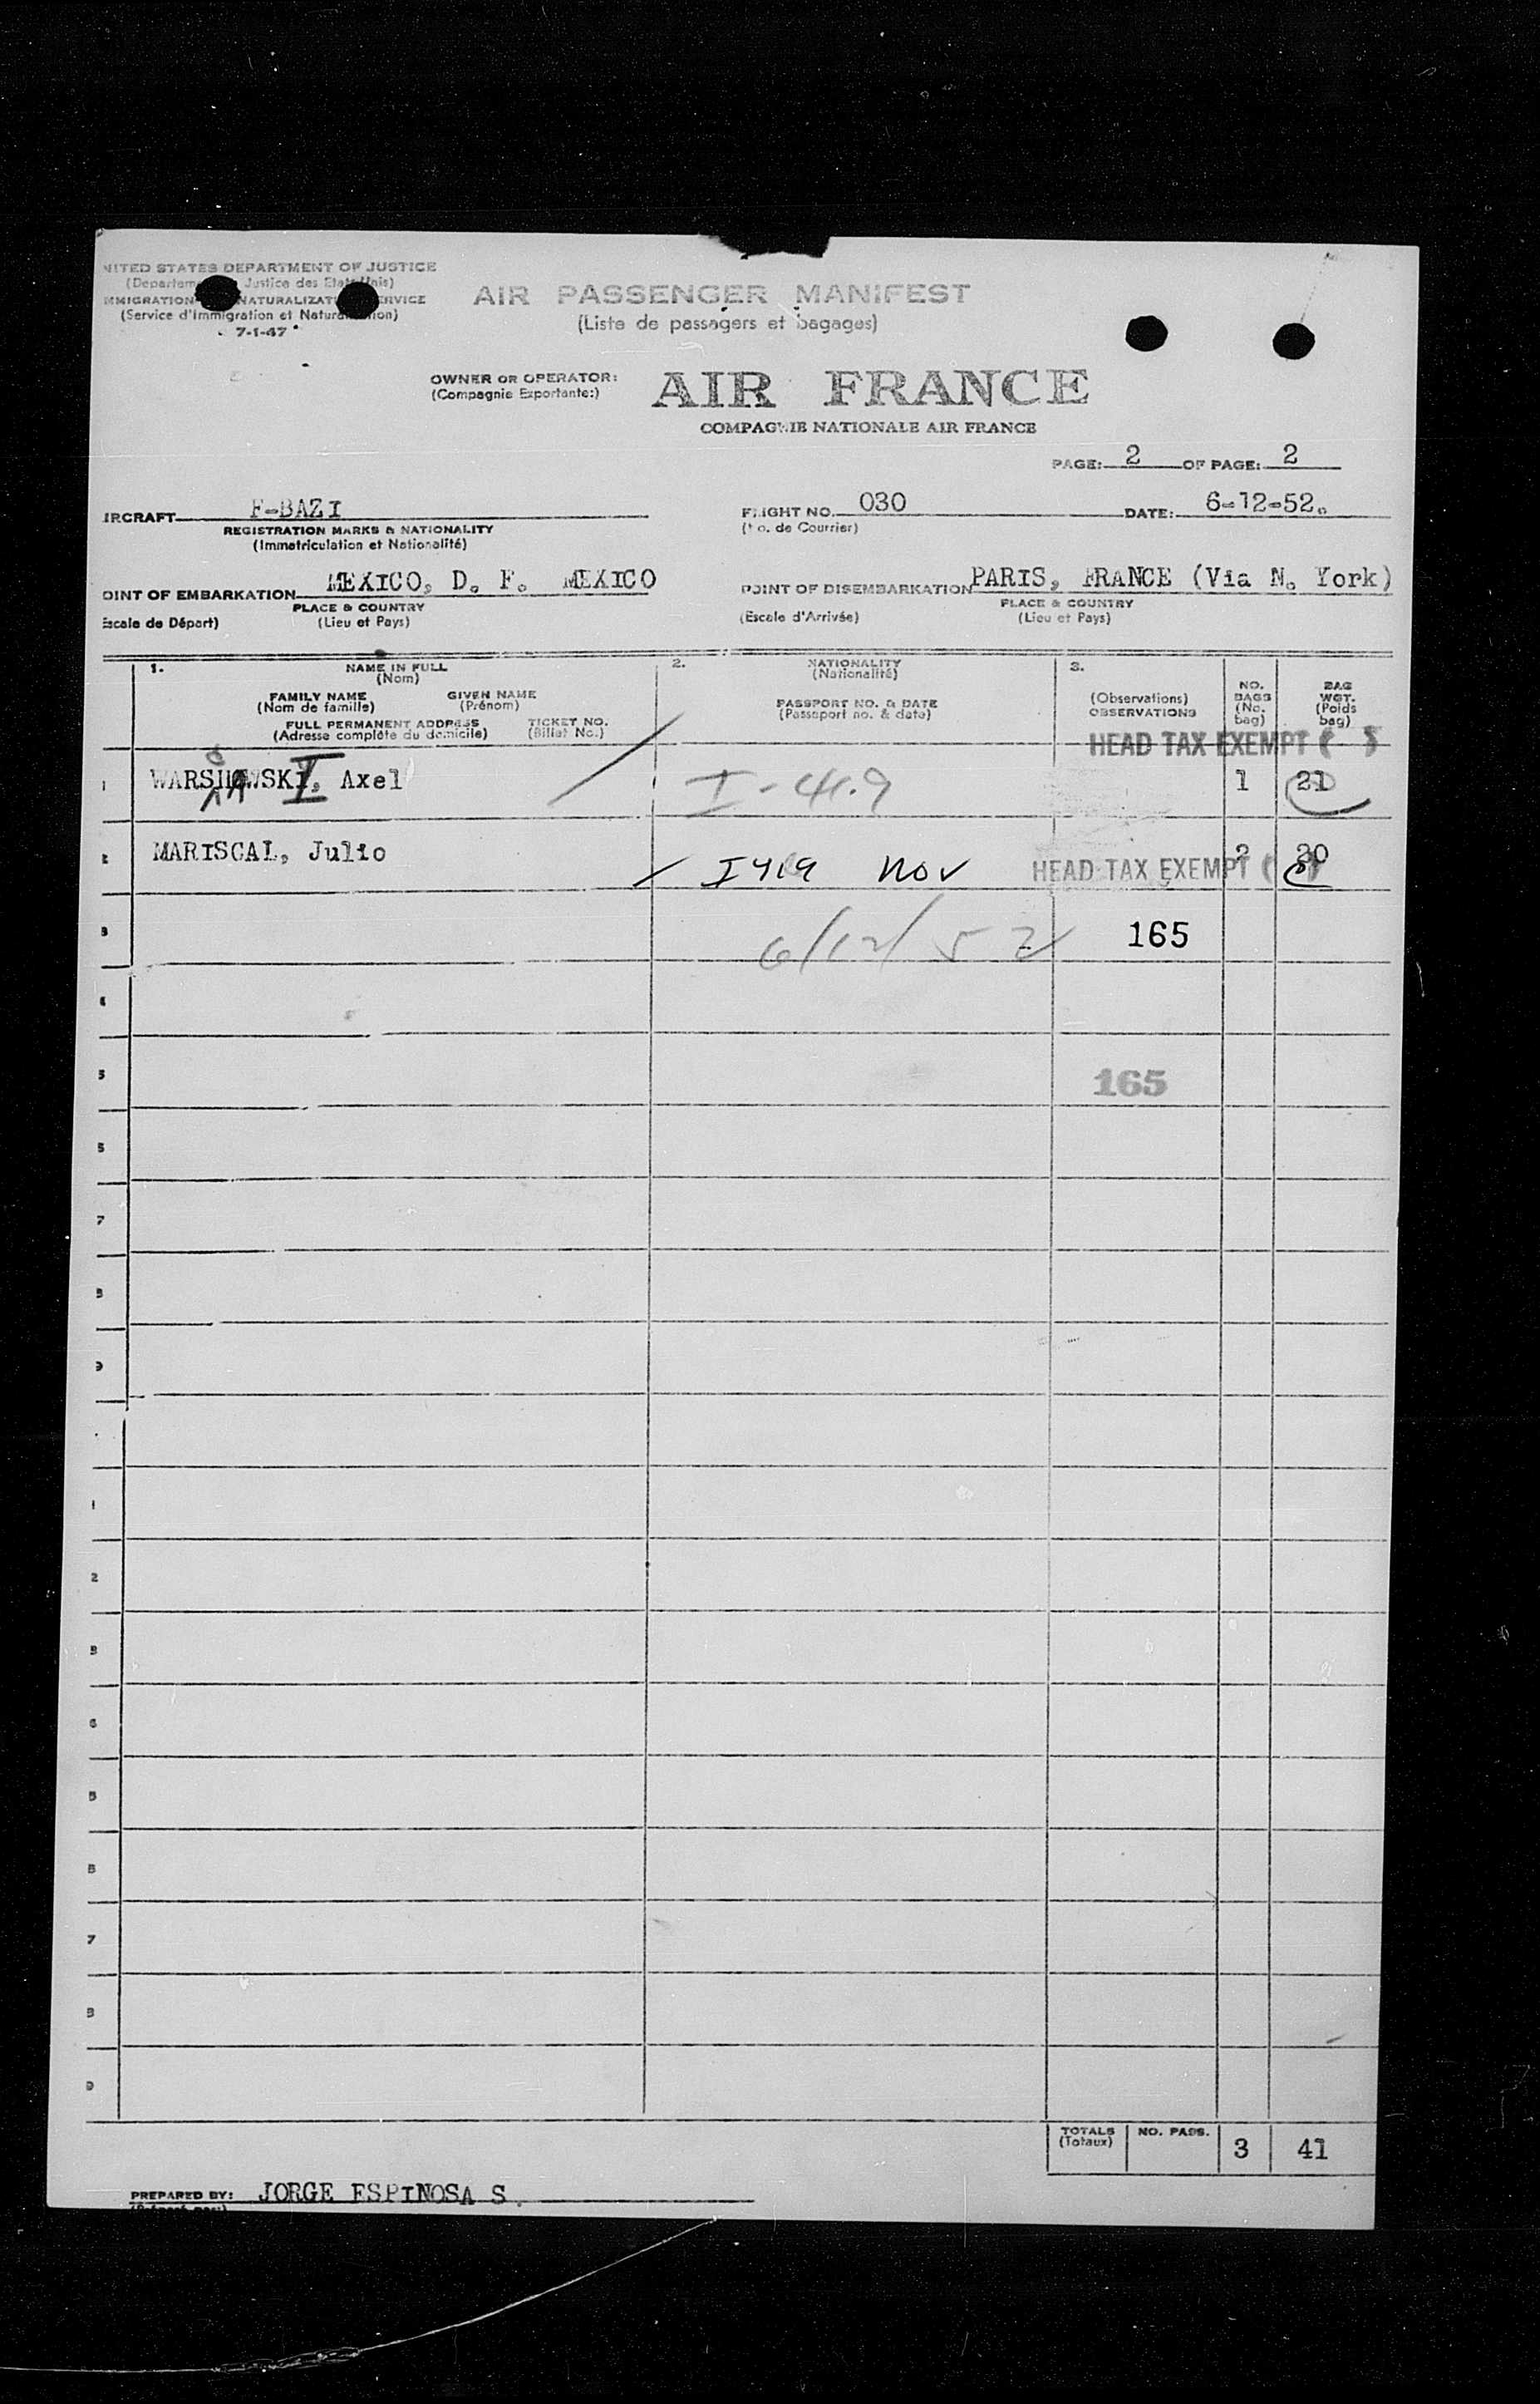 NITED STATES DEPARTMENT OF JUSTICE
(Departem Justice des Etats Unis)
MMIGRATION NATURALIZATI ERVICE
(Service d'Immigration et Natura ion)
7-1-47
AIR PASSENGER MANIFEST
(Liste de passagers et bagages)
OWNER OR OPERATOR:
(Compagnie Exportante:)
AIR FRANCE
COMPAGNIE NATIONALE AIR FRANCE
PAGE: 2 OF PAGE: 2
IRCRAFT F-BAZI
REGISTRATION MARKS & NATIONALITY
(Immatriculation et Nationalité)
FLIGHT NO. 030
(No. de Courrier)
DATE: 6-12-52.
OINT OF EMBARKATION MEXICO, D. F. MEXICO
PLACE & COUNTRY
Escale de Départ) (Lieu et Pays)
POINT OF DISEMBARKATION PARIS, FRANCE (Via N. York)
PLACE & COUNTRY
(Escale d'Arrivée) (Lieu et Pays)
1. NAME IN FULL
(Nom)
FAMILY NAME GIVEN NAME
(Nom de famille) (Prénom)
FULL PERMANENT ADDRESS TICKET NO.
(Adresse complète du domicile) (Billet No.)
2. NATIONALITY
(Nationalité)
PASSPORT NO. & DATE
(Passport no. & date)
3.
(Observations)
OBSERVATIONS
NO.
BAGS
(No.
bag)
BAG
WGT.
(Poids
bag)
HEAD TAX EXEMPT ( )
1 Axel I-419 1 21
2 MARISCAL, Julio I419 Nov HEAD TAX EXEMPT ( ) 2 20
3 6/12/52 165
4
5 165
6
7
8
9
1
2
3
5
7
8
9
TOTALS
(Totaux)
NO. PASS. 3 41
PREPARED BY: JORGE ESPINOSA S.